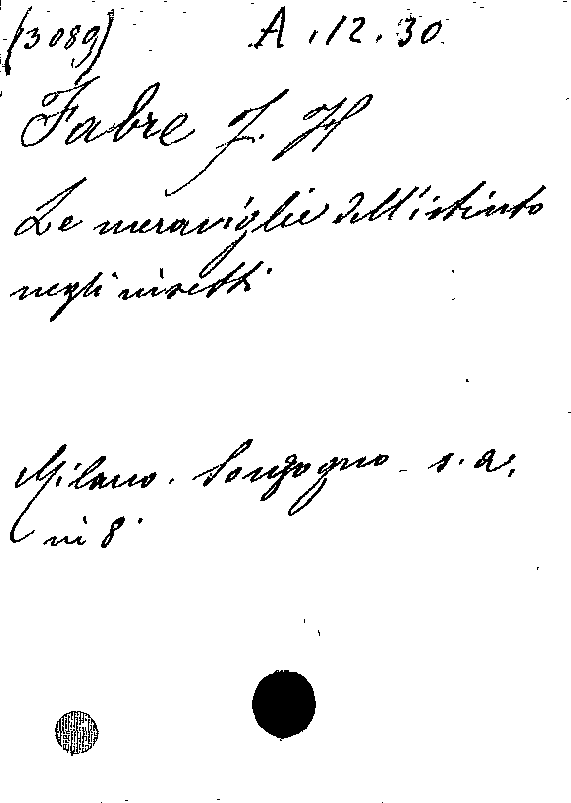 (3089) A.12.30
Fabre J. H
Le meraviglie dell'istinto
negli insetti
Milano. Sonzogno - s.a.
in 8°